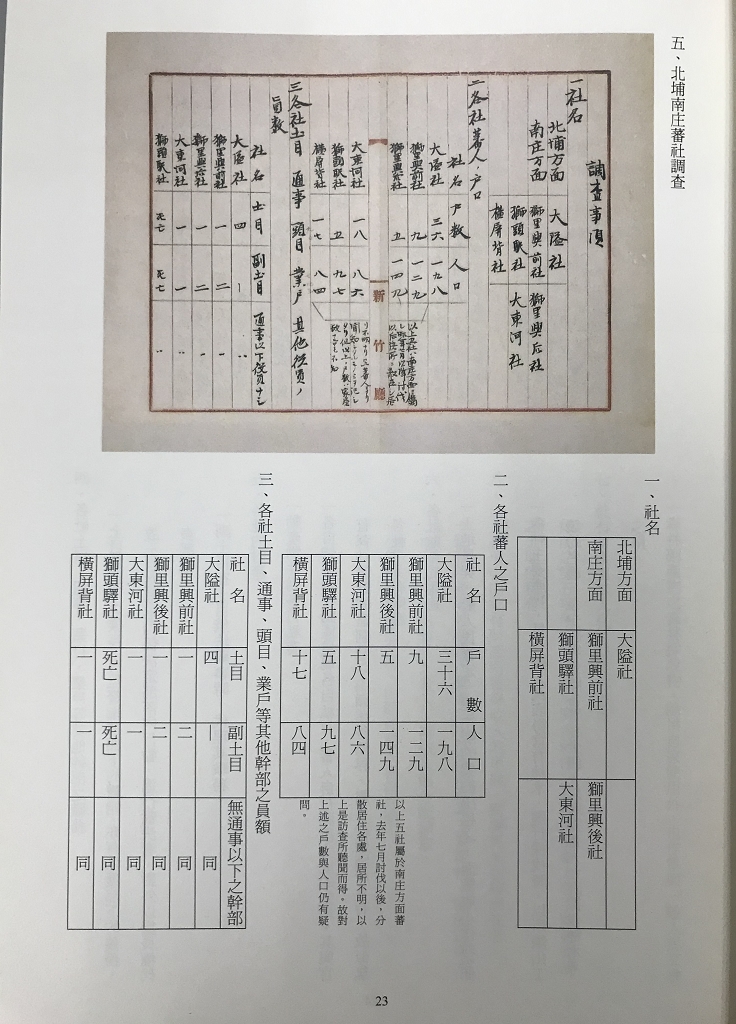 五、北埔南庄蕃社調查
調査事項
一社名
北埔方面 大隘社
南庄方面 獅里興前社 獅里興后社
獅頭駅社 大東河社
橫屏背社
二各社蕃人ノ戶口
社名 戶數 人口
大隘社 三六 一九八
獅里興前社 九 一二九
獅里興后社 五 一四九
新竹廳
大東河社 一八 八六
獅頭駅社 五 九七
橫屏背社 一七 八四
三各社土目 通事 頭目 業戶 其他役員ノ
員数
社名 土目 副土目 通事以下役員ナシ
大隘社 四 ｜ 〃
獅里興前社 一 二
獅里興后社 一 二
大東河社 一 一 〃
獅頭駅社 死亡 死亡 〃
一、社名
北埔方面 大隘社
南庄方面 獅里興前社 獅里興後社
獅頭驛社 大東河社
橫屏背社
二、各社蕃人之戶口
社名 戶數 人口
大隘社 三十六 一九八
獅里興前社 九 一二九
獅里興後社 五 一四九
大東河社 十八 八六
獅頭驛社 五 九七
橫屏背社 十七 八四
以上五社屬於南庄方面蕃
社，去年七月討伐以後，分
散居住各處，居所不明，以
上是訪查所聽聞而得。故對
上述之戶數與人口仍有疑
問。
三、各社土目、通事、頭目、業戶等其他幹部之員額
社名 土目 副土目 無通事以下之幹部
大隘社 四 ｜ 同
獅里興前社 一 二 同
獅里興後社 一 二 同
大東河社 一 一 同
獅頭驛社 死亡 死亡 同
橫屏背社 一 一 同
23